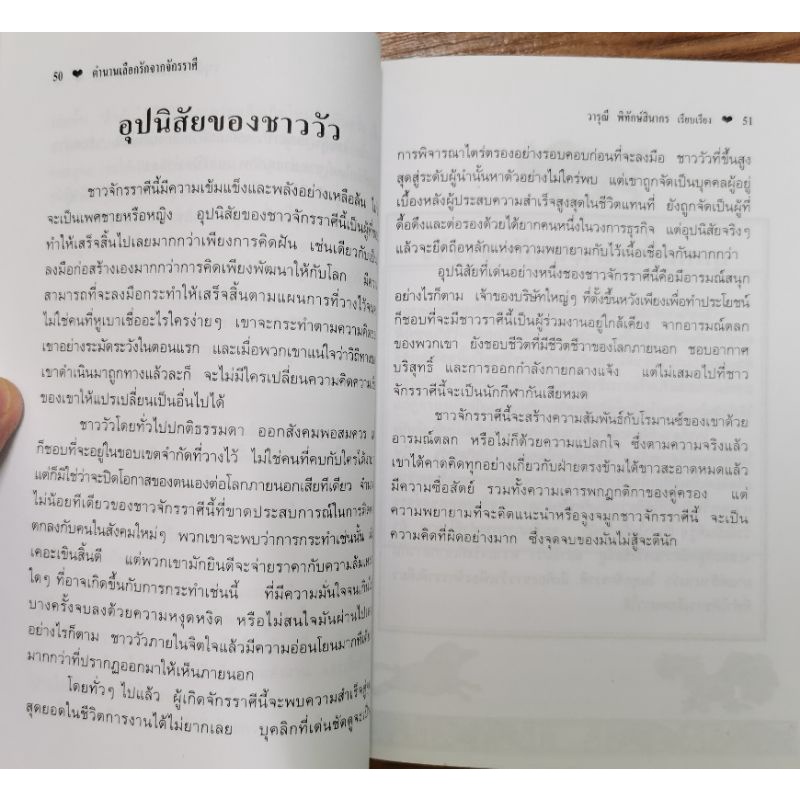 50 ❤ ตำนานเลือกรักจากจักรราศี
อุปนิสัยของชาววัว
ชาวจักรราศีนี้มีความเข้มแข็งและพลังอย่างเหลือล้น
จะเป็นเพศชายหรือหญิง อุปนิสัยของชาวจักรราศีนี้เป็นผู้ที่
ทำให้เสร็จสิ้นไปเลยมากกว่าเพียงการคิดฝัน เช่นเดียวกับ
ลงมือก่อสร้างเองมากกว่าการคิดเพียงพัฒนาให้กับโลก
สามารถที่จะลงมือกระทำให้เสร็จสิ้นตามแผนการที่วางไว้
ไม่ใช่คนที่หูเบาเชื่ออะไรใครง่ายๆ เขาจะกระทำตามความคิด
เขาอย่างระมัดระวังในตอนแรก และเมื่อพวกเขาแน่ใจว่าวิธีทาง
เขาดำเนินมาถูกทางแล้วละก็ จะไม่มีใครเปลี่ยนความคิดความ
ของเขาให้แปรเปลี่ยนเป็นอื่นไปได้
ชาววัวโดยทั่วไปปกติธรรมดา ออกสังคมพอสมควร
ก็ชอบที่จะอยู่ในขอบเขตจำกัดที่วางไว้ ไม่ใช่คนที่คบกับใครได้
แต่ก็มิใช่ว่าจะปิดโอกาสของตนเองต่อโลกภายนอกเสียทีเดียว
ไม่น้อยทีเดียวของชาวจักรราศีนี้ที่ขาดประสบการณ์ในการ
ตกลงกับคนในสังคมใหม่ๆ พวกเขาจะพบว่าการกระทำเช่นนั้น
เคอะเขินสิ้นดี แต่พวกเขามักยินดีจะจ่ายราคากับความล้มเหลว
ใดๆ ที่อาจเกิดขึ้นกับการกระทำเช่นนี้ ที่มีความมั่นใจจนเกิน
บางครั้งจบลงด้วยความหงุดหงิด หรือไม่สนใจมันผ่านไป
อย่างไรก็ตาม ชาววัวภายในจิตใจแล้วมีความอ่อนโยนมาก
มากกว่าที่ปรากฏออกมาให้เห็นภายนอก
โดยทั่วๆ ไปแล้ว ผู้เกิดจักรราศีนี้จะพบความสำเร็จ
สุดยอดในชีวิตการงานได้ไม่ยากเลย บุคลิกที่เด่นชัดดูจะ
วารุณี พิทักษ์สินากร เรียบเรียง ❤ 51
การพิจารณาไตร่ตรองอย่างรอบคอบก่อนที่จะลงมือ ชาววัวที่ขึ้นสูง
สุดสู่ระดับผู้นำนั้นหาตัวอย่างไม่ใคร่พบ แต่เขาถูกจัดเป็นบุคคลผู้อยู่
เบื้องหลังผู้ประสบความสำเร็จสูงสุดในชีวิตแทนที่ ยังถูกจัดเป็นผู้ที่
ดื้อดึงและต่อรองด้วยได้ยากคนหนึ่งในวงการธุรกิจ แต่อุปนิสัยจริงๆ
แล้วจะยึดถือหลักแห่งความพยายามกับไว้เนื้อเชื่อใจกันมากกว่า
อุปนิสัยที่เด่นอย่างหนึ่งของชาวจักรราศีนี้คือมีอารมณ์สนุก
อย่างไรก็ตาม เจ้าของบริษัทใหญ่ๆ ที่ตั้งขึ้นหวังเพียงเพื่อทำประโยชน์
ก็ชอบที่จะมีชาวราศีนี้เป็นผู้ร่วมงานอยู่ใกล้เคียง จากอารมณ์ตลก
ของพวกเขา ยังชอบชีวิตที่มีชีวิตชีวาของโลกภายนอก ชอบอากาศ
บริสุทธิ์ และการออกกำลังกายกลางแจ้ง แต่ไม่เสมอไปที่ชาว
จักรราศีนี้จะเป็นนักกีฬากันเสียหมด
ชาวจักรราศีนี้จะสร้างความสัมพันธ์กับโรมานซ์ของเขาด้วย
อารมณ์ตลก หรือไม่ก็ด้วยความแปลกใจ ซึ่งตามความจริงแล้ว
เขาได้คาดคิดทุกอย่างเกี่ยวกับฝ่ายตรงข้ามได้ขาวสะอาดหมดแล้ว
มีความซื่อสัตย์ รวมทั้งความเคารพกฎกติกาของคู่ครอง แต่
ความพยายามที่จะคิดแนะนำหรือจูงจมูกชาวจักรราศีนี้ จะเป็น
ความคิดที่ผิดอย่างมาก ซึ่งจุดจบของมันไม่สู้จะดีนัก